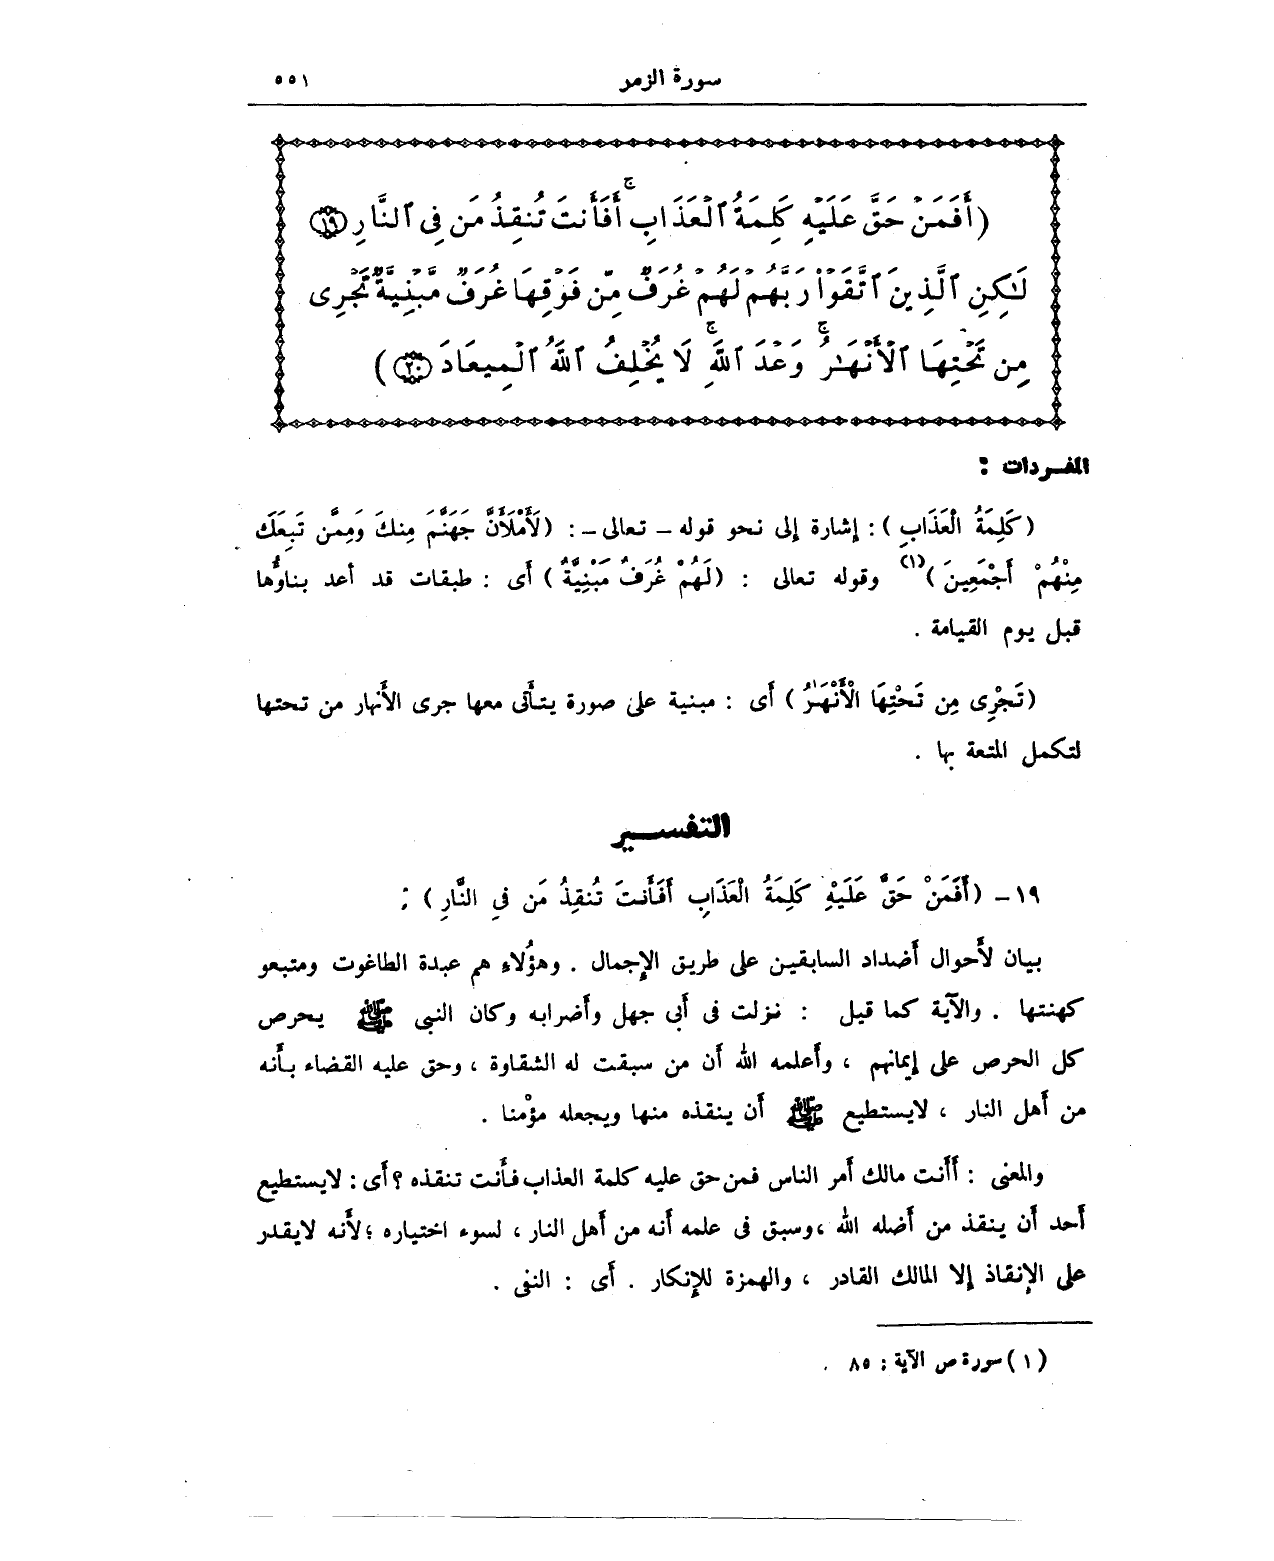 سورة الزمر ٥٥١
(أَفَمَنْ حَقَّ عَلَيْهِ كَلِمَةُ ٱلْعَذَابِ ۚ أَفَأَنتَ تُنقِذُ مَن فِى ٱلنَّارِ ١٩
لَـٰكِنِ ٱلَّذِينَ ٱتَّقَوْا۟ رَبَّهُمْ لَهُمْ غُرَفٌ مِّن فَوْقِهَا غُرَفٌ مَّبْنِيَّةٌ تَجْرِى
مِن تَحْتِهَا ٱلْأَنْهَـٰرُ ۚ وَعْدَ ٱللَّهِ ۚ لَا يُخْلِفُ ٱللَّهُ ٱلْمِيعَادَ ٢٠)
المفـردات :
(كَلِمَةُ الْعَذَابِ) : إشارة إلى نحو قوله – تعالى – : (لَأَمْلَأَنَّ جَهَنَّمَ مِنكَ وَمِمَّن تَبِعَكَ
مِنْهُمْ أَجْمَعِينَ)(١) وقوله تعالى : (لَهُمْ غُرَفٌ مَبْنِيَّةٌ) أى : طبقات قد أعد بناؤها
قبل يوم القيامة .
(تَجْرِى مِن تَحْتِهَا الْأَنْهَـٰرُ) أى : مبنية على صورة يتأتى معها جرى الأنهار من تحتها
لتكمل المتعة بها .
التفسـير
١٩ – (أَفَمَنْ حَقَّ عَلَيْهِ كَلِمَةُ الْعَذَابِ أَفَأَنتَ تُنقِذُ مَن فِى النَّارِ) :
بيان لأحوال أضداد السابقين على طريق الإجمال . وهؤلاء هم عبدة الطاغوت ومتبعو
كهنتها . والآية كما قيل : نزلت فى أبى جهل وأضرابه وكان النبى ﷺ يحرص
كل الحرص على إيمانهم ، وأعلمه الله أن من سبقت له الشقاوة ، وحق عليه القضاء بأنه
من أهل النار ، لايستطيع ﷺ أن ينقذه منها ويجعله مؤْمنا .
والمعنى : أأنت مالك أمر الناس فمن حق عليه كلمة العذاب فأنت تنقذه ؟ أى : لايستطيع
أحد أن ينقذ من أضله الله ،وسبق فى علمه أنه من أهل النار ، لسوء اختياره ؛لأنه لايقدر
على الإنقاذ إلا المالك القادر ، والهمزة للإنكار . أى : النفى .
(١) سورة ص الآية : ٨٥ .